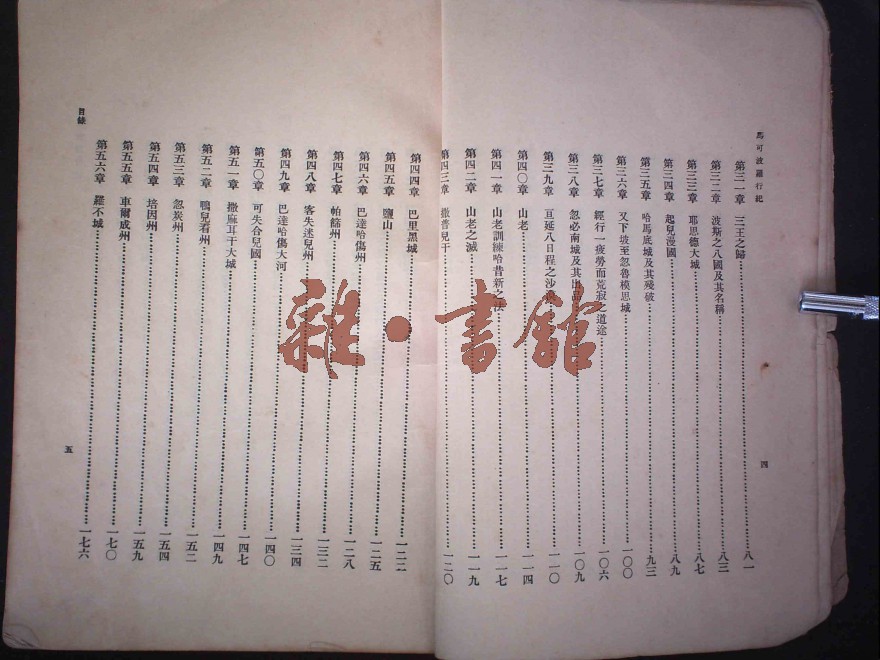 馬可波羅行紀
第三一章 三王之歸……八一
第三二章 波斯之八國及其名稱……八三
第三三章 耶思德大城……八七
第三四章 起兒漫國……八九
第三五章 哈馬底城及其殘破……九三
第三六章 又下坡至忽魯模思城……一〇〇
第三七章 經行一疲勞而荒寂之道途……一〇六
第三八章 忽必南城及其出品……一〇九
第三九章 亘延八日程之沙漠……一一〇
第四〇章 山老……一一四
第四一章 山老訓練哈昔新之法……一一七
第四二章 山老之滅……一一九
第四三章 撒普兒干……一二〇
四
第四四章 巴里黑城……一二二
第四五章 鹽山……一二五
第四六章 巴達哈傷州……一二八
第四七章 帕篩州……一三二
第四八章 客失迷兒州……一三四
第四九章 巴達哈傷大河……一四〇
第五〇章 可失合兒國……一四七
第五一章 撒麻耳干大城……一四九
第五二章 鴨兒看州……一五二
第五三章 忽炭州……一五四
第五四章 培因州……一五九
第五五章 車爾成州……一七〇
第五六章 羅不城……一七六
目錄
五
雜·書館